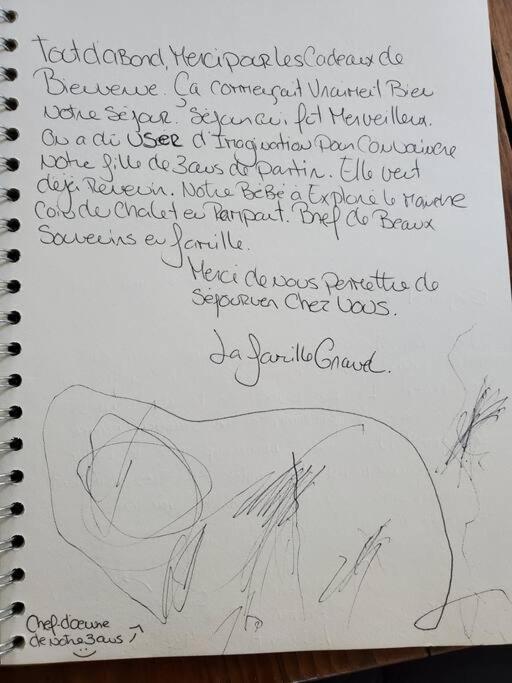 Tout d'abord, Merci pour les Cadeaux de
Bienvenue. Ça commençait Vraiment Bien
Notre Séjour. Séjour qui fut Merveilleux.
On a dû USER d'Imagination Pour Convaincre
Notre fille de 3 ans de Partir. Elle veut
déjà Revenir. Notre BéBé à Exploré le Moindre
Coin du Chalet en Rampant. Bref de Beaux
Souvenirs en famille.
Merci de nous Permettre de
Séjourner Chez Vous.
La famille Gravel.
Chef-d'oeuvre
de Notre 3 ans